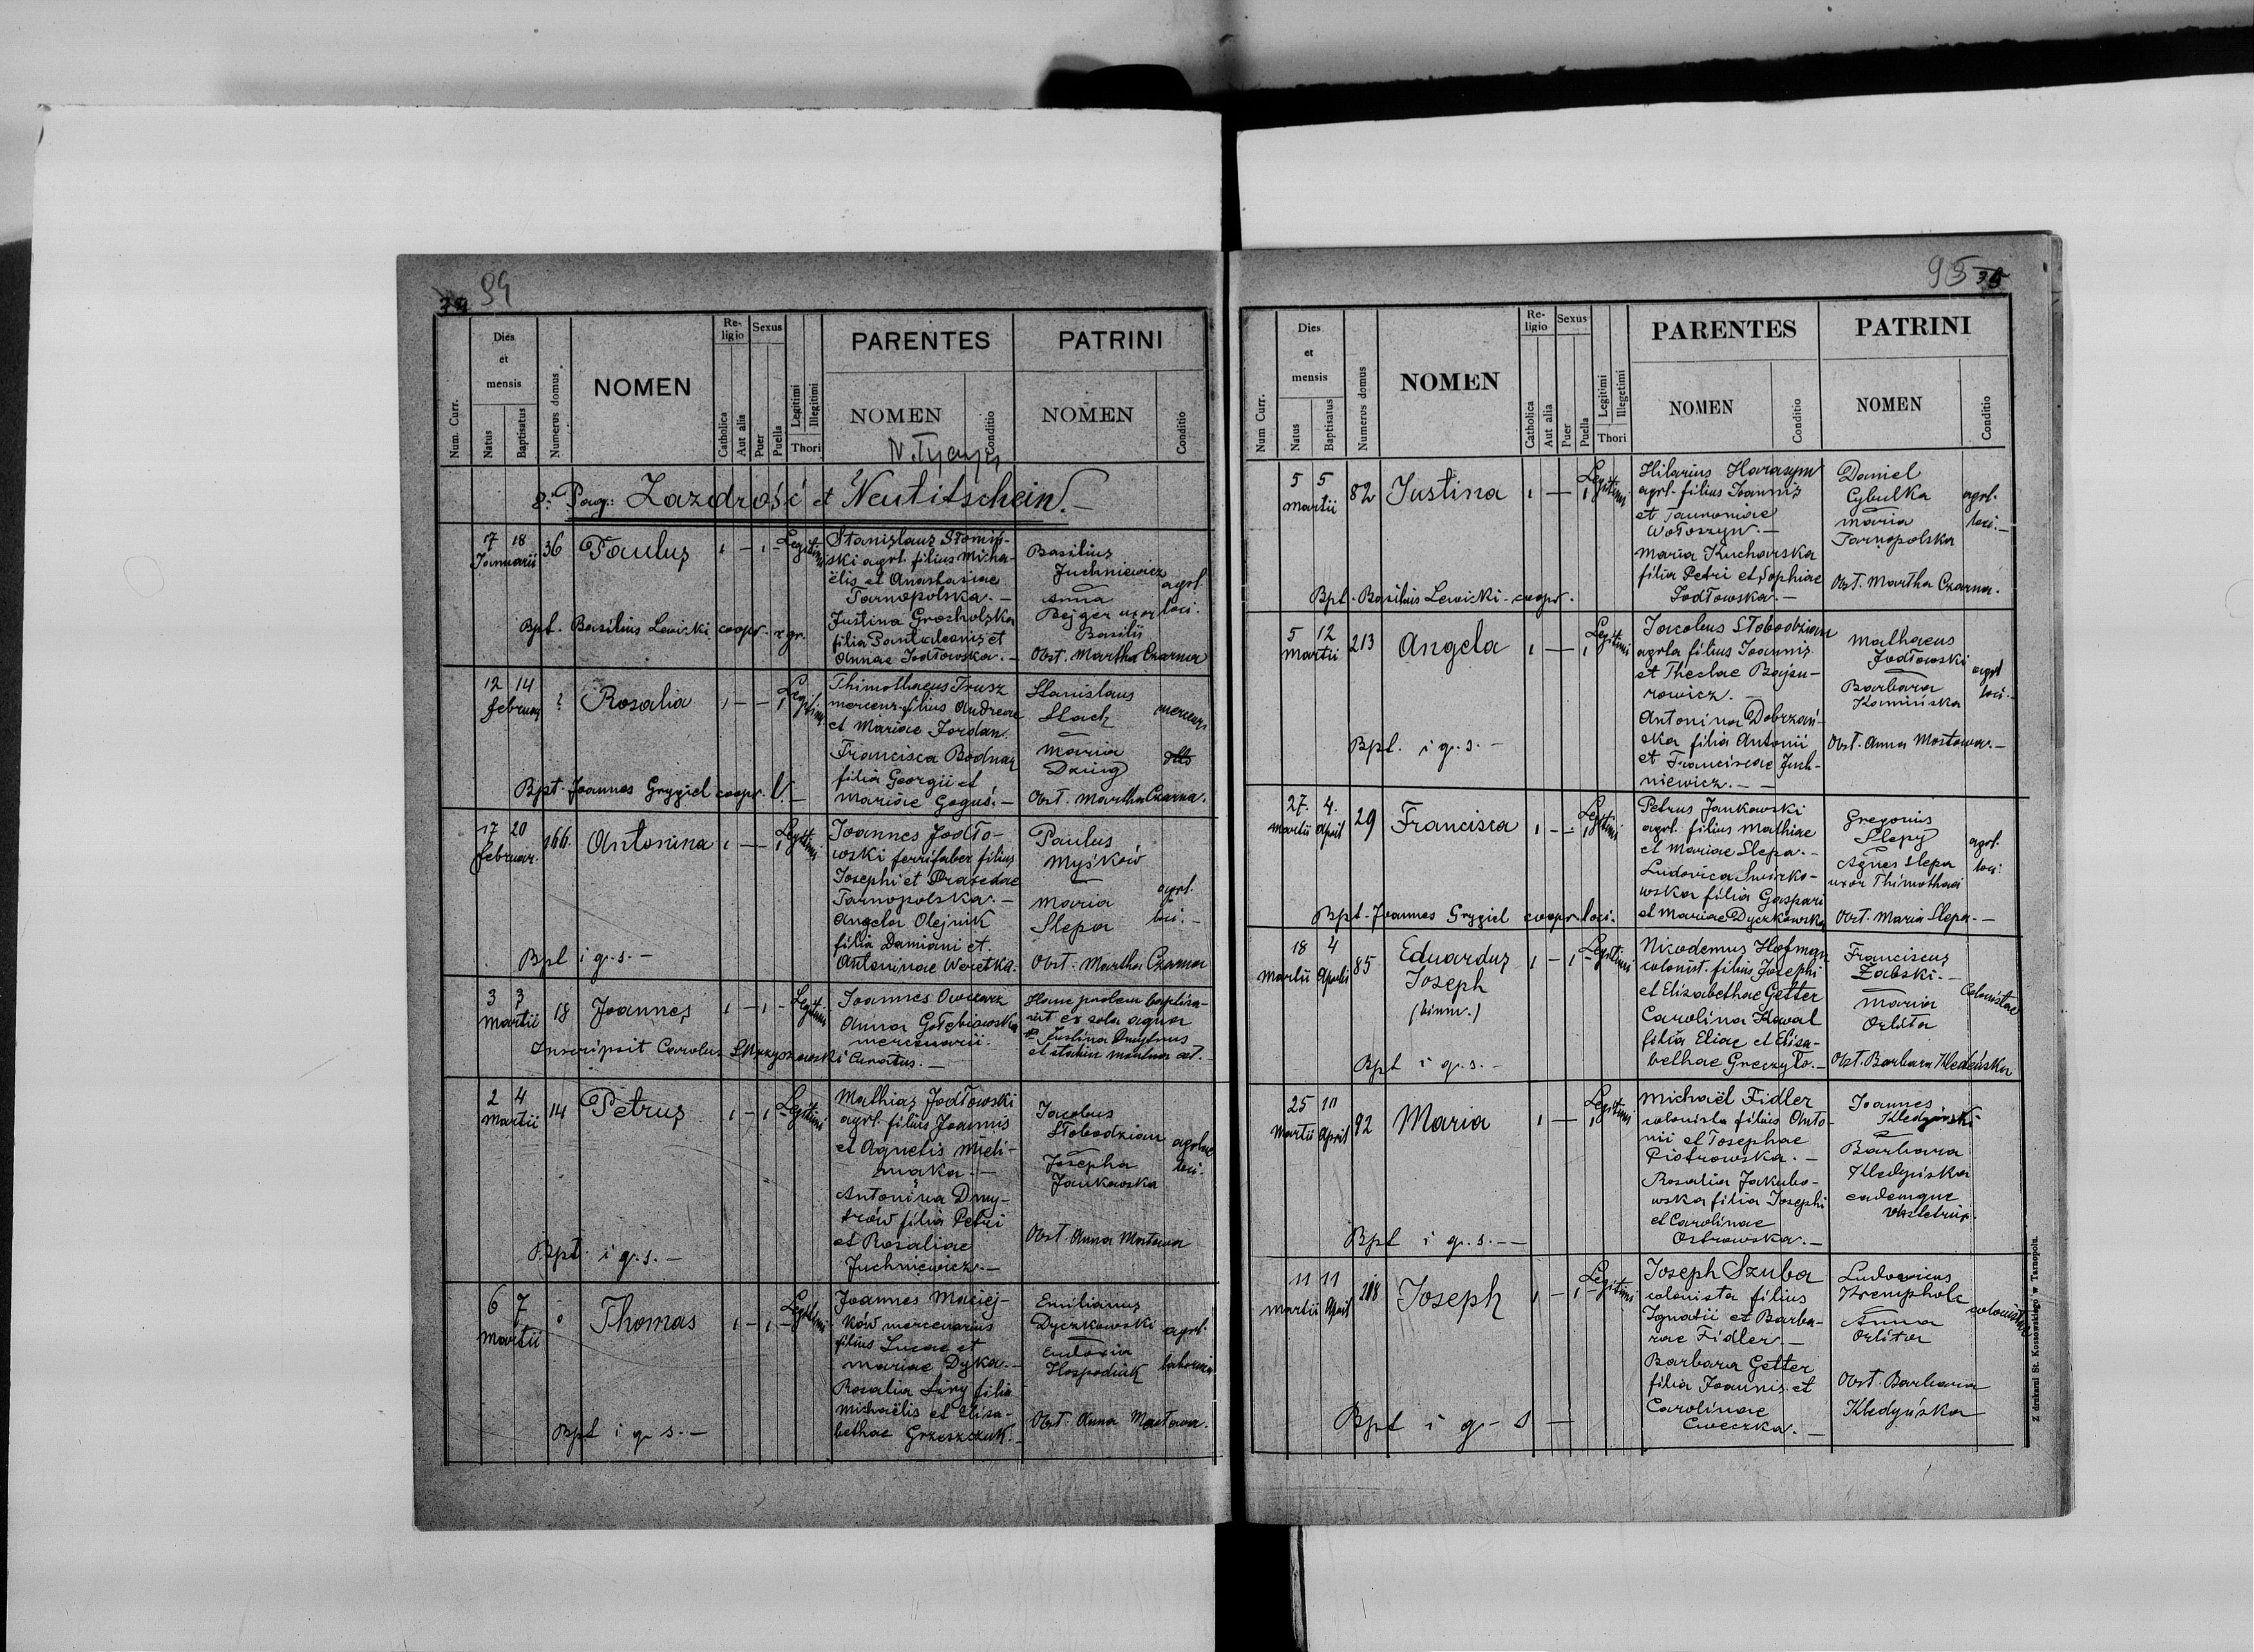 94
Num. Curr.
Dies et mensis
Natus
Baptisatus
Numerus domus
NOMEN
Religio
Catholica
Aut alia
Sexus
Puer
Puella
Legitimi
Illegitimi
Thori
PARENTES
NOMEN
Conditio
PATRINI
NOMEN
Conditio
8. Pag.: Zazdrość et Neutitschein.-
17 18
Januarii
36
Paulus
1 - 1 -
Legitimi
Stanislaus Słomiń-
ski agrl. filius Micha-
ëlis et Anastasiae
Tarnopolska.-
Justina Grocholska
filia Pantaleonis et
Annae Jodłowska.-
Basilius
Juchniewicz
Anna
Bejger uxor
Basilii
agrl.
loci.
Obst. Martha Czarna
Bpt. Basilius Lewicki coopr. r. gr.
12 14
februar
?
Rosalia
1 - - 1
Legitimi
Thimothaeus Trusz
mercenr. filius Andreae
et Mariae Jordan.
Francisca Bodnar
filia Georgii et
Mariae Goguś.-
Stanislaus
Stach
Maria
mercenr
Obst. Martha Czarna.
Bpt. Joannes Grygiel coopr. l.-
17 20
februar.
166
Antonina
1 - - 1
Legitimi
Joannes Jodło-
wski ferrifaber filius
Josephi et Praxedae
Tarnopolska.-
Angela Olejnik
filia Damiani et
Antoninae Weretka.
Paulus
Myśków
Maria
Slepa
agrl.
loci.-
Obst. Martha Czarna
Bpt i g. s.-
3 3
Martii
18
Joannes
1 - 1 -
Legitimi
Joannes Owczarz
Anna Gołębiowska
mercenarii.
Hanc prolem baptisa-
vit ex sola aqua
Justina Dmytrus
et statim mortua est.-
Inscripsit Carolus Skrzyszowski Curatus.-
2 4
Martii
14
Petrus
1 - 1 -
Legitimi
Mathias Jodłowski
agrl. filius Joannis
et Agnetis Mieli-
maka.-
Antonina Dmy-
trów filia Petri
et Rosaliae
Juchniewicz.-
Jacobus
Słobodzian
Josepha
Jankowska
agrlae
loci.
Obst. Anna Mostowa
Bpt. i g. s.-
6 7
Martii
Thomas
1 - 1 -
Legitimi
Joannes Maciej-
ków mercenarius
filius Lucae et
Mariae Dyka.-
Rosalia Siny filia
Michaëlis et Elisa-
bethae Grzeszczuk.-
Emilianus
Dyczkowski
Eudoxia
Hospodiuk
agrl.
Obst. Anna Mostowa.
Bpt i g. s.-
95
Num Curr.
Dies et mensis
Natus
Baptisatus
Numerus domus
NOMEN
Religio
Catholica
Aut alia
Sexus
Puer
Puella
Legitimi
Illegetimi
Thori
PARENTES
NOMEN
Conditio
PATRINI
NOMEN
Conditio
5 5
Martii
82
Justina
1 - - 1
Legitimi
Hilarius Harasym
agrl. filius Joannis
et
Wołoszyn.-
Maria Kucharska
filia Petri et Sophiae
Jodłowska.-
Daniel
Cybulka
Maria
Tarnopolska
agrl.
loci.-
Obst. Martha Czarna.
Bpt. Basilius Lewicki coopr.
5 12
Martii
213
Angela
1 - - 1
Legitimi
Jacobus Słobodzian
agrla filius Joannis
et Theclae Bajsu-
rowicz.-
Antonina Dobrzań-
ska filia Antonii
et Franciscae Juch-
niewicz.- -
Mathaeus
Jodłowski
Barbara
Kamińska
agrl
loci.-
Obst. Anna Mostowa.-
Bpt. i g. s.-
27. 4.
Martii April
29
Francisca
1 - - 1
Legitimi
Petrus Jankowski
agrl. filius Mathiae
et Mariae Slepa.-
Ludovica Swirko-
wska filia Gaspari
et Mariae Dyczkowska
Gregorius
Slepy
Agnes Slepa
uxor Thimothaei
agrl.
loci.
Obst. Maria Slepa.-
Bpt. Joannes Grygiel coopr. loci.
18 4
Martii Aprilis
85
Eduardus
Joseph
(binm.)
1 - 1 -
Legitimi
Nicodemus Hofman
colonist. filius Josephi
et Elisabethae Getter
Carolina Kawal
filia Eliae et Elisa-
bethae Greczyło.-
Franciscus
Żabski.-
Maria
Orlita
Colonistae
Obst. Barbara Kledyńska
Bpt i g. s.-
25 10
Martii April
92
Maria
1 - - 1
Legitimi
Michaël Fidler
colonista filius Anto-
nii et Josephae
Piotrowska.-
Rosalia Jakubo-
wska filia Josephi
et Carolinae
Ostrowska.-
Joannes
Kledyński
Barbara
Kledyńska
eademque
obstetrix.
Bpt i g. s.--
11 11
Martii April
218
Joseph
1 - 1 -
Legitimi
Joseph Szuba
colonista filius
Ignatii et Barba-
rae Fidler.-
Barbara Getter
filia Joannis et
Carolinae
Cweczka.-
Ludovicus
Krempholc
Anna
Orlita
colonistae
Obst. Barbara
Kledyńska
Bpt i g- s -
Z drukarni St. Kossowskiego w Tarnopolu.